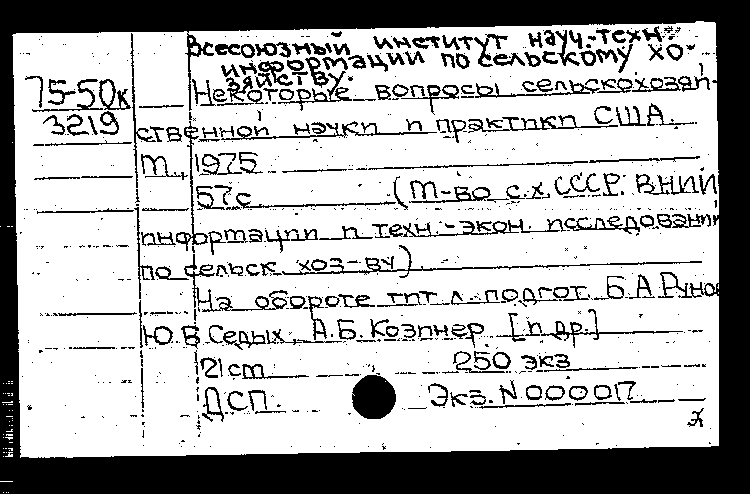 Всесоюзный институт науч.-техн.
информации по сельскому хо-
зяйству.
75-50к
3219
Некоторые вопросы сельскохозяй-
ственной науки и практики США.
М., 1975
57с. (М-во с.х. СССР. ВНИИ
информации и техн.-экон. исследований
по сельск. хоз-ву).
На обороте тит. л.: подгот. Б.А. Рунов
Ю.В. Седых, А.Б. Козинер [и др.]
21 cm 250 экз
ДСП. Экз. N000017